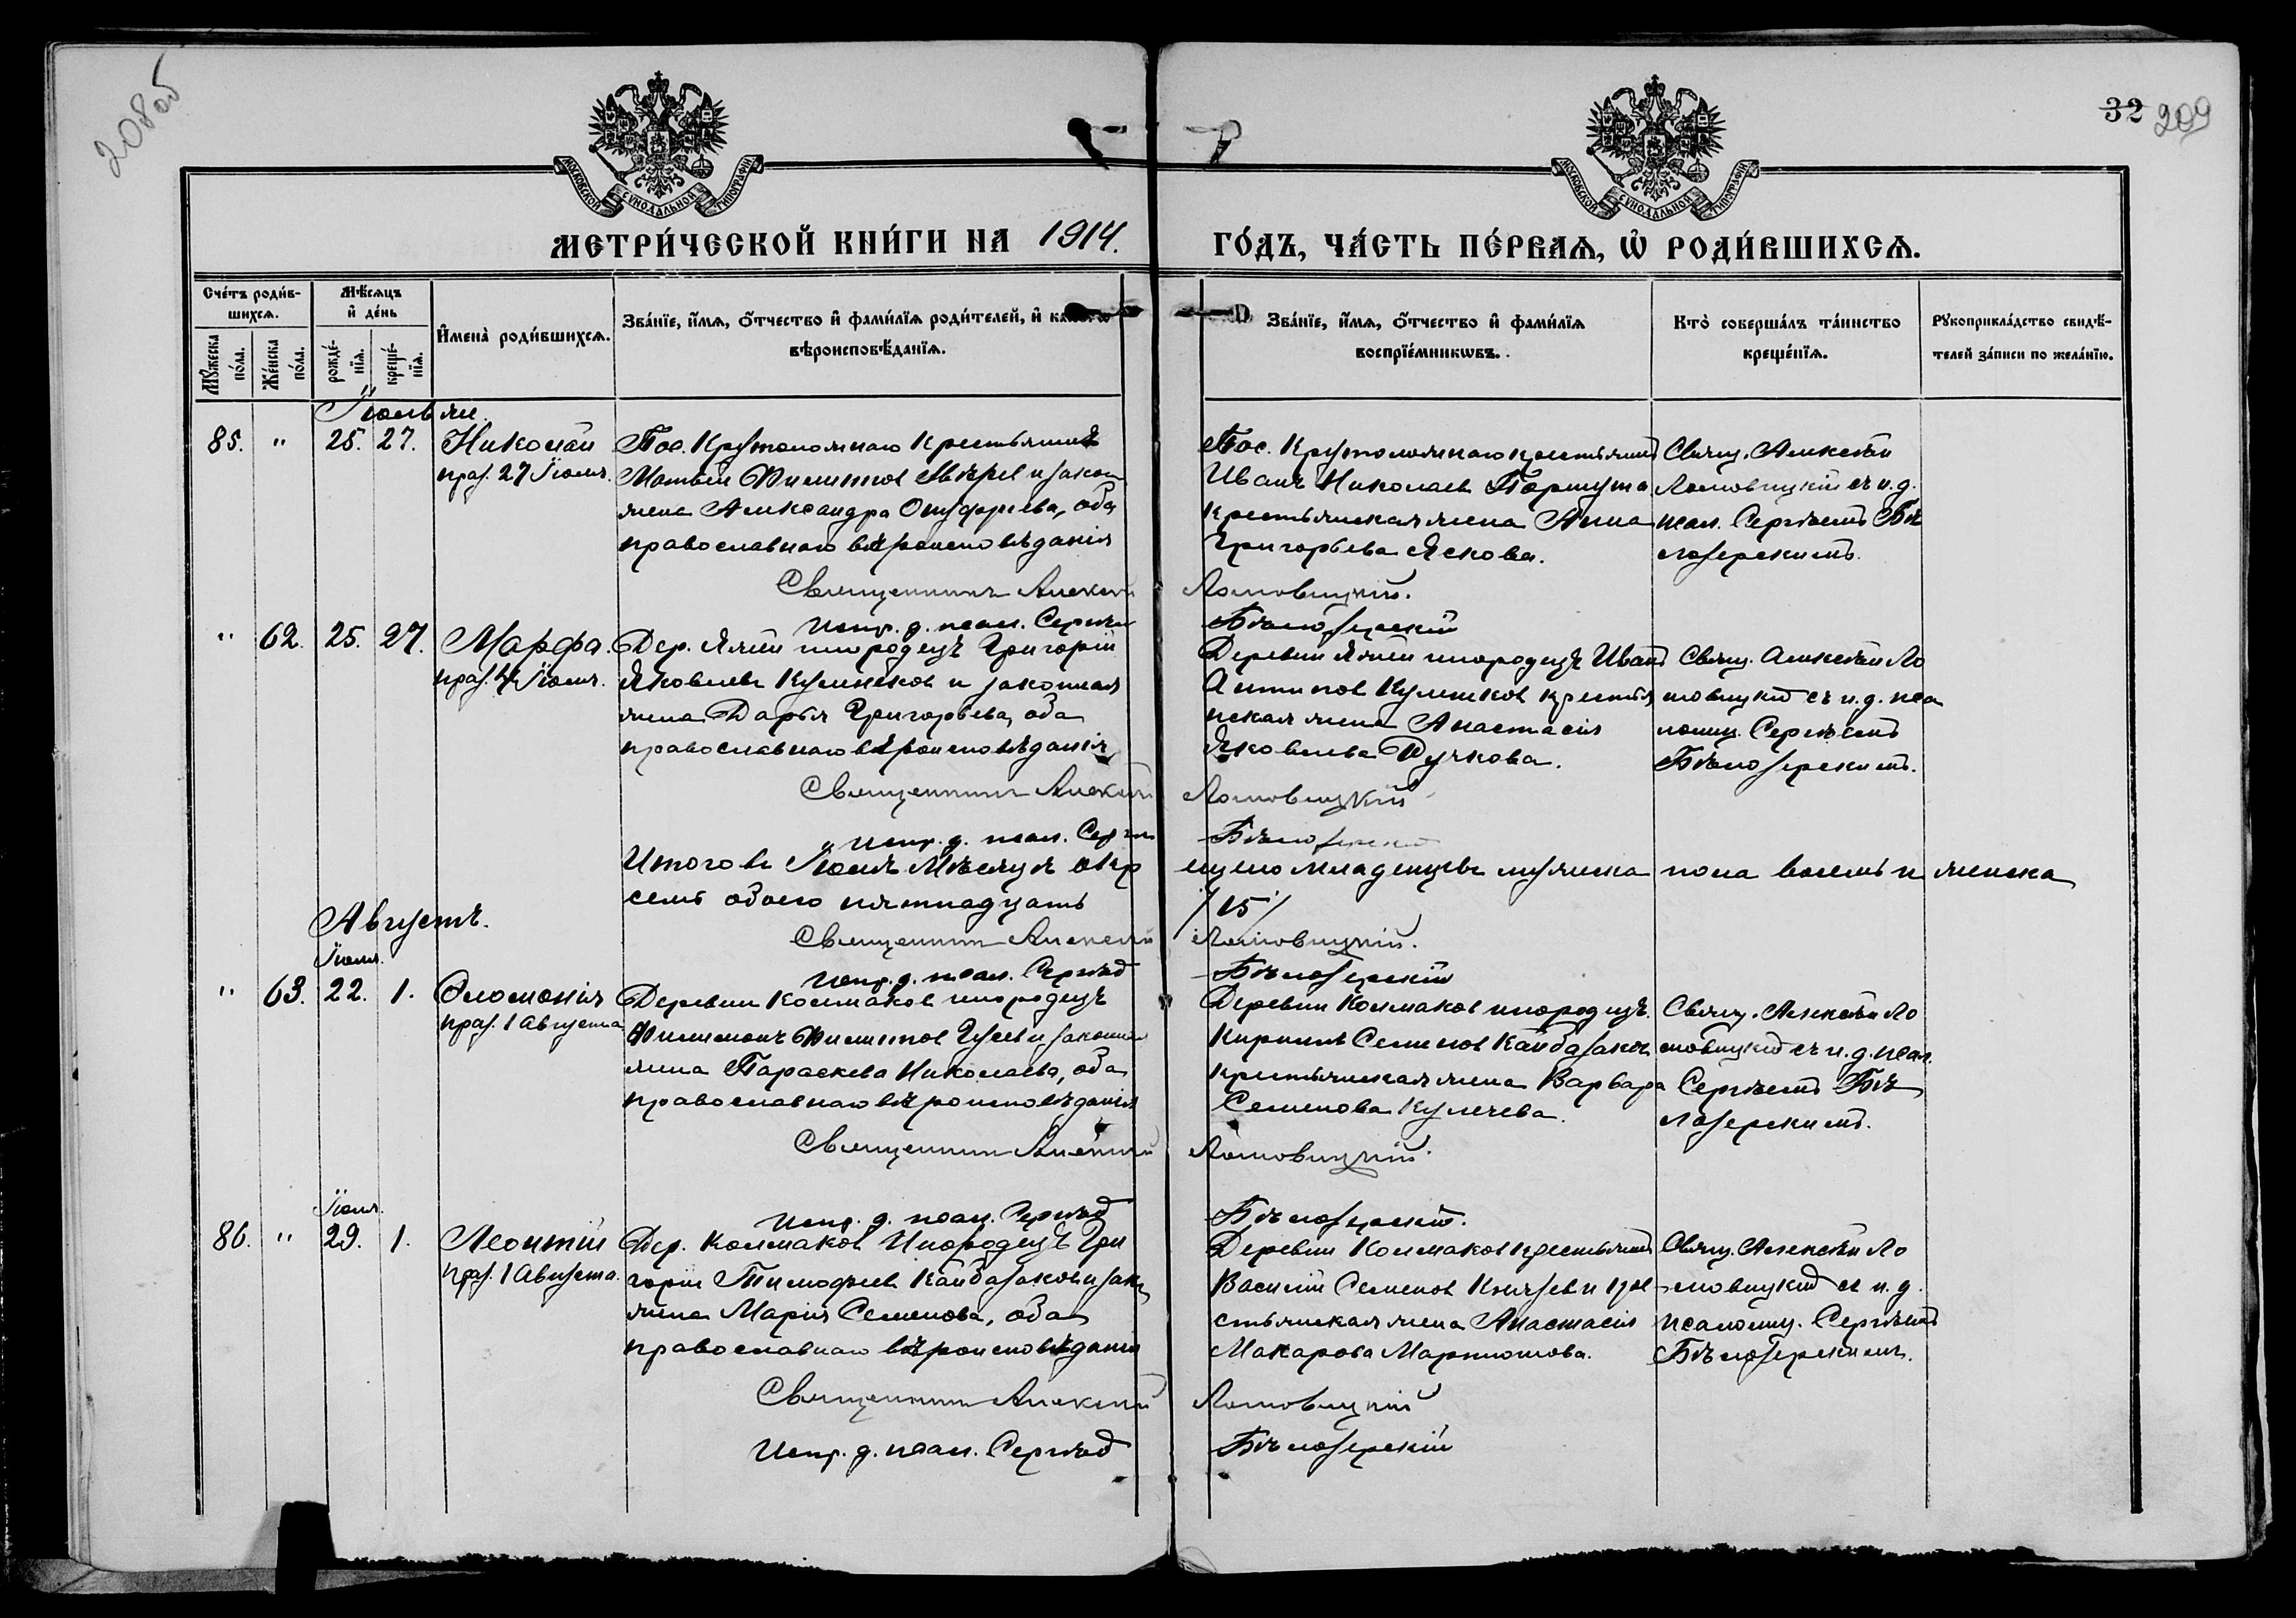 208об
32 209
МОСКОВСКОЙ СѴНОДАЛЬНОЙ ТИПОГРАФІИ
МОСКОВСКОЙ СѴНОДАЛЬНОЙ ТИПОГРАФІИ
МЕТРИ́ЧЕСКОЙ КНИ́ГИ НА 1914.
ГО́ДЪ, ЧА́СТЬ ПЕ́РВАѦ, Ѡ҆ РОДИ́ВШИХСѦ.
Сче́тъ роди́в-
шихсѧ.
Мꙋ́жеска по́ла.
Же́нска по́ла.
Мѣ́сѧцъ
и҆ де́нь
рожде́-
нїѧ.
креще́-
нїѧ.
И҆мена̀ роди́вшихсѧ.
Зва́нїе, и҆́мѧ, ѻ҆́тчество и҆ фами́лїѧ роди́телей, и҆
вѣроисповѣ́данїѧ.
Зва́нїе, и҆́мѧ, ѻ҆́тчество и҆ фами́лїѧ
воспрїе́мникѡвъ.
Кто̀ соверша́лъ та́инство
креще́нїѧ.
Рꙋкоприкла́дство свидѣ́-
телей за́писи по жела́нїю.
Іюль
85. " 25. 27. Николай
праз. 27 Іюля.
Пос. Крутоложнаго крестьянинъ
Матвѣй Филиппов и закон
жена Александра Онуфріева, оба
православнаго вѣроисповѣданія
Пос. Крутоложнаго крестьянинъ
Иванъ Николаев Паршута
крестьянская жена Анна
Григорьева Яскова.
Свящ. Алексѣй
Ломовицкій съ и. д.
псал. Сергѣемъ Бѣ
лозерскимъ.
Священникъ Алексѣй Ломовицкій.
Испр. д. псал. Сергѣй Бѣлозерскій
" 62. 25. 27. Марфа.
праз. Іюля.
Дер. инородецъ Григорій
Яковлевъ и законная
жена Дарья Григорьева, оба
православнаго вѣроисповѣданія
Деревни инородецъ Иванъ
Антипов крестья
нская жена Анастасія
Яковлева Ручкова.
Свящ. Алексѣй Ло
мовицкій съ и. д. пса
ломщ. Сергѣемъ
Бѣлозерскимъ.
Священникъ Алексѣй Ломовицкій
Испр. д. псал. Сергѣй Бѣлозерскій
Итого въ Іюлѣ Мѣсяцѣ окрещено младенцевъ мужеска пола восемь и женска
семь обоего пятнадцать /15/
Августъ.
Священникъ Алексѣй Ломовицкій.
Испр. д. псал. Сергѣй Бѣлозерскій
Іюля.
" 63. 22. 1. Соломонія
праз. 1 Августа
Деревни Колмаков инородецъ
Филимонъ Филиппов Гусев и законная
жена Параскева Николаева, оба
православнаго вѣроисповѣданія
Деревни Колмаков инородецъ
Кириллъ Семенов Кайбазаковъ
крестьянская жена Варвара
Семенова Кулечева.
Свящ. Алексѣй Ло
мовицкій съ и. д. псал.
Сергѣемъ Бѣ
лозерскимъ.
Священникъ Алексѣй Ломовицкій.
Испр. д. псал. Сергѣй Бѣлозерскій.
Іюля.
86. " 29. 1. Леонтій
праз. 1 Августа.
Дер. Колмаков Инородецъ Гри
горій Тимофѣев Кайбазаков и зак.
жена Марія Семенова, оба
православнаго вѣроисповѣданія
Деревни Колмаков крестьянинъ
Василій Семенов Князев и кре
стьянская жена Анастасія
Макарова Мартюшова.
Свящ. Алексѣй Ло
мовицкій съ и. д.
псаломщ. Сергѣемъ
Бѣлозерскимъ.
Священникъ Алексѣй Ломовицкій
Испр. д. псал. Сергѣй Бѣлозерскій